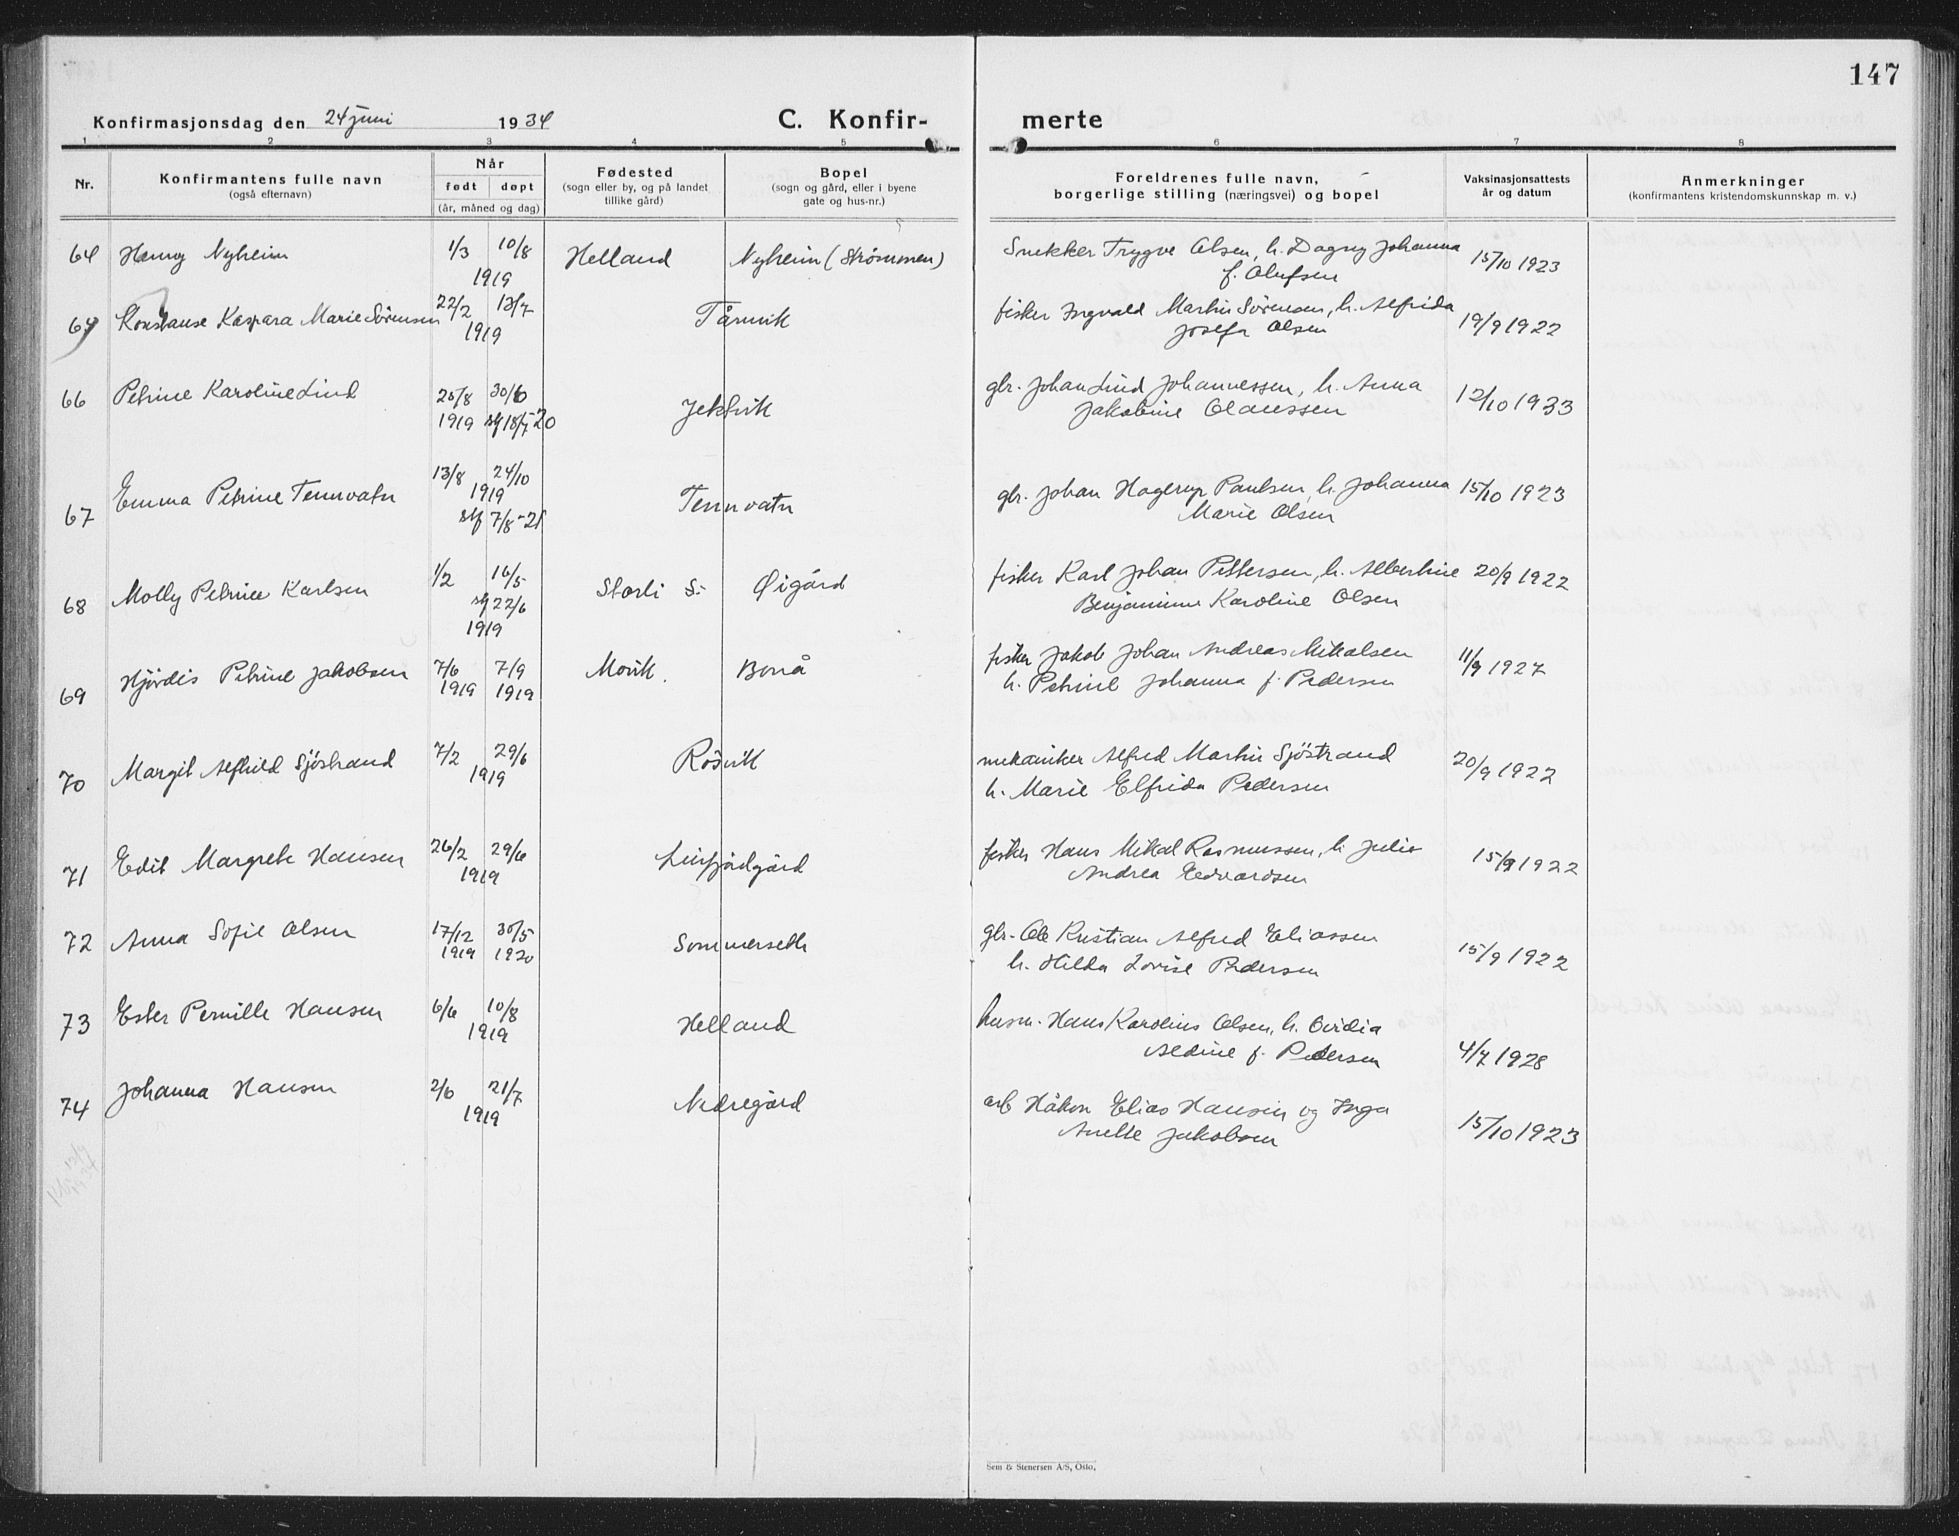 147
Konfirmasjonsdag den 24 juni 1934 C. Konfir- merte
1 2 3 4 5 6 7 8
Nr. Konfirmantens fulle navn (også efternavn) Når født døpt (år, måned og dag) Fødested (sogn eller by, og på landet tillike gård) Bopel (sogn og gård, eller i byene gate og hus-nr.) Foreldrenes fulle navn, borgerlige stilling (næringsvei) og bopel Vaksinasjonsattests år og datum Anmerkninger (konfirmantens kristendomskunnskap m. v.)
64 Henry Nyheim 1/3 10/8 Helland Nyheim (Strømmen) Snekker Trygve Olsen, h. Dagny Johanna 15/10 1923
1919 f. Olufsen
65 Konstanse Kaspara Marie Sørensen 22/2 13/7 Tårnvik fisker Ingvald Martin Sørensen, h. Alfrida 19/9 1922
1919 Josefa Olsen
66 Petrine Karoline Lind 25/8 30/6 Jektvik gbr. Johan Lind Johannessen, h. Anna 12/10 1933
1919 stf 18/7-20 Jakobine Olaussen
67 Emma Petrine Tennvatn 13/8 24/10 Tennvatn gbr. Johan Hagerup Paulsen, h. Johanna 15/10 1923
1919 Marie Olsen
stf 7/8-21
68 Molly Petrine Karlsen 1/2 16/5 Storli S. Øigård fisker Karl Johan Pettersen, h. Albertine 20/9 1922
stf 22/6 Benjaminne Karoline Olsen
1919
69 Hjördis Petrine Jakobsen 7/6 7/9 Movik. Bonå fisker Jakob Johan Andreas Mikalsen 11/9 1927
1919 1919 h. Petrine Johanna f. Pedersen
70 Margit Alfhild Sjöstrand 7/2 29/6 Rösvik mekaniker Alfred Martin Sjöstrand 20/9 1922
1919 h. Marie Elfrida Pedersen
71 Edit Margrete Hansen 26/2 29/6 Leirfjordgård fisker Hans Mikal Rasmussen, h. Julie 15/9 1922
1919 Andrea Edvardsen
72 Anna Sofie Olsen 17/12 30/5 Sommerseth gbr. Ole Kristian Alfred Eliassen 15/9 1922
1919 1920 h. Hilda Lovise Pedersen
73 Ester Pernille Hansen 6/6 10/8 Helland husm. Hans Karolius Olsen, h. Ovidia
1919 Aldine f. Pedersen 4/7 1928
74 Johanna Hansen 2/6 21/7 Nedregård arb Håkon Elias Hansen og Inga 15/10 1923
1919 Anette Jakobsen
Sem & Stenersen A/S, Oslo.